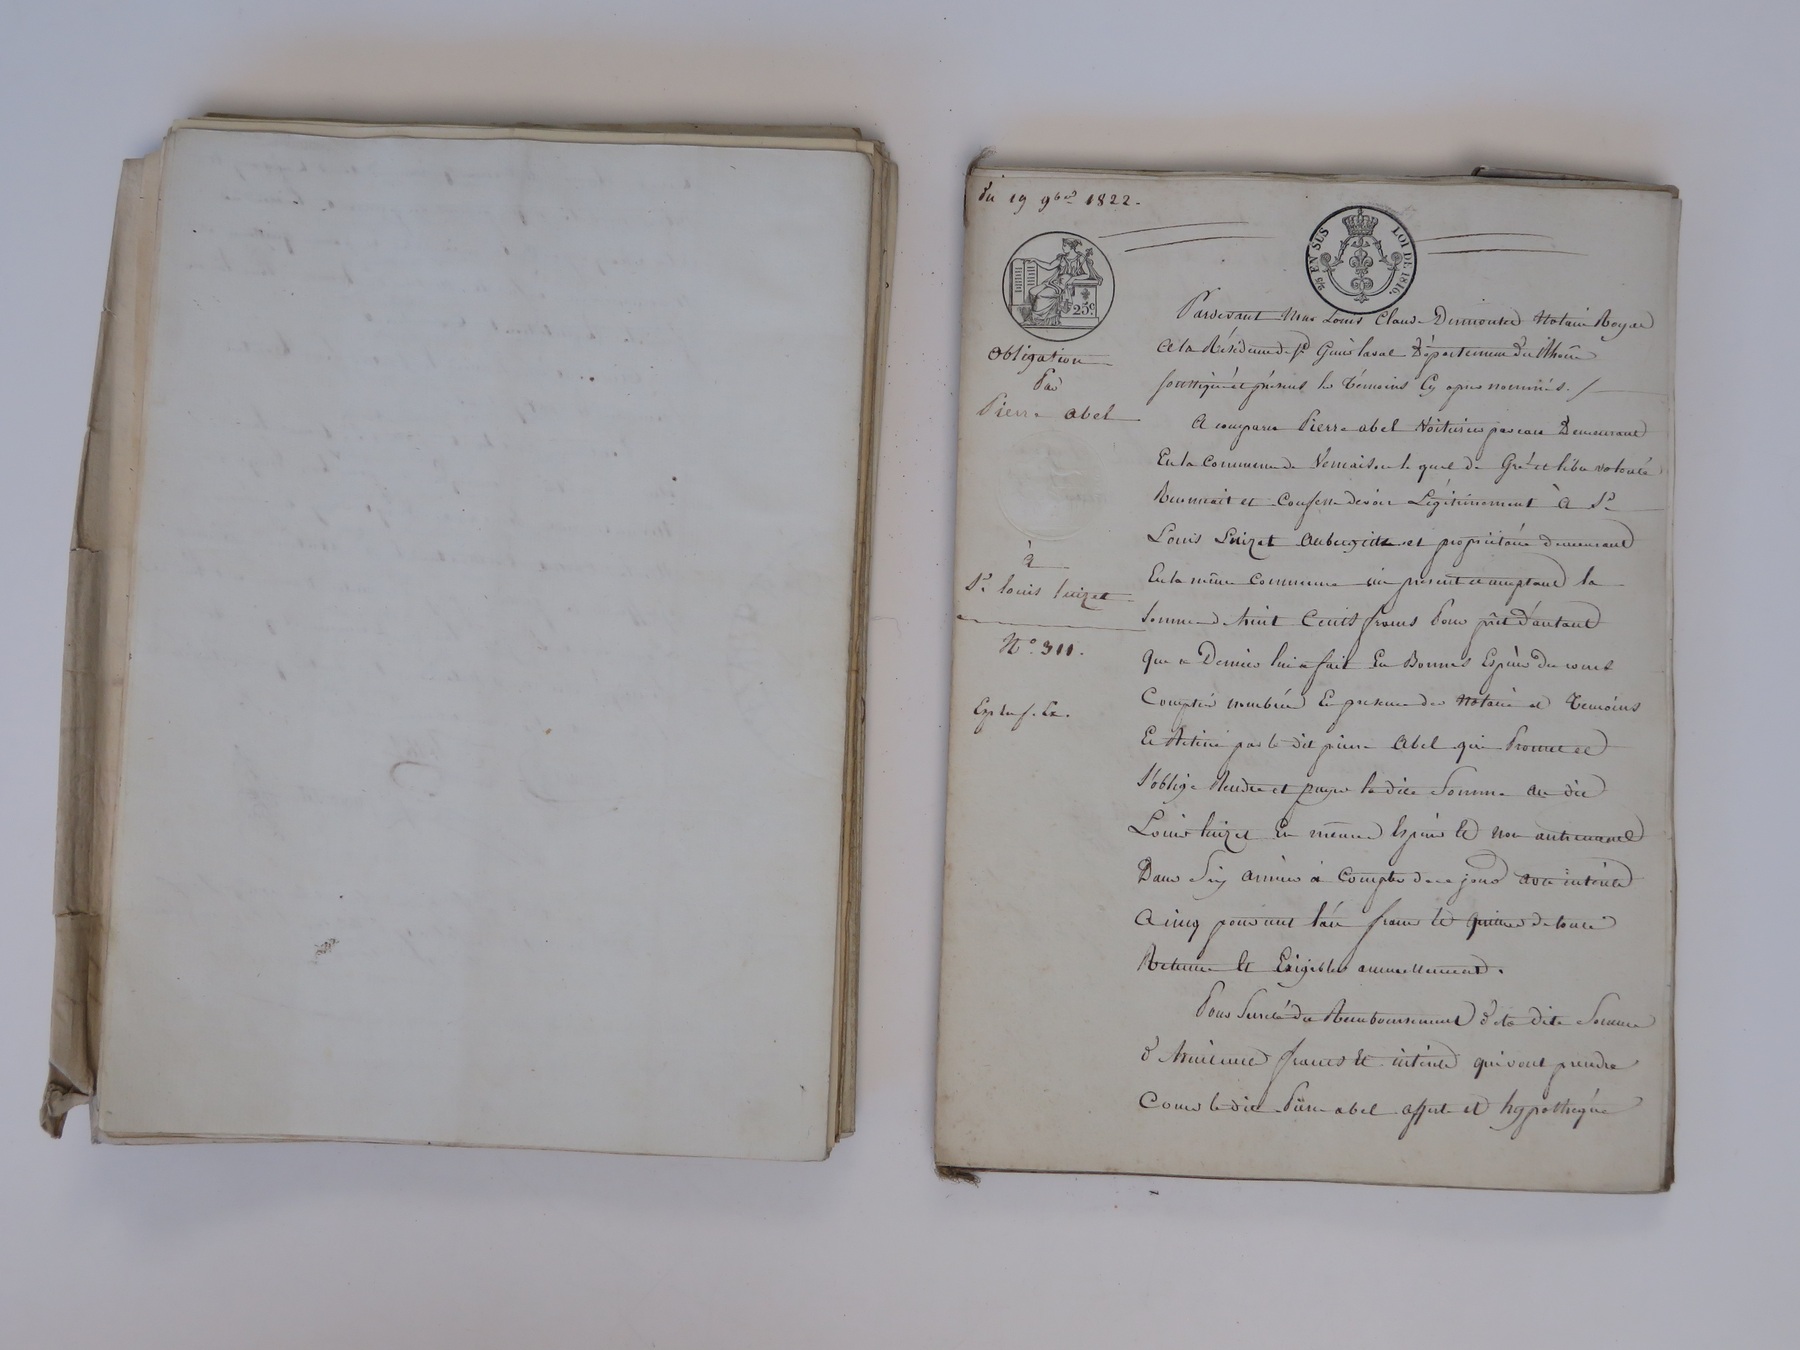 Du 19 9bre 1822.
2/5 EN SUS LOI DE 1816.
25c
Obligation
Par
Pierre abel
à
Sr. louis luizet
N° 311.
Pardevant Nous Louis Claude Notaire Royal
A la Résidence de St Genis laval Département du Rhône
soussigné et présens les Témoins Cy apres nommés. /
A comparu Pierre abel Voiturier par eau Demeurant
En la Commune de Vernaison le quel de Gré et libre volonté
Reconnait et Confesse devoir Légitimement à Sr.
Louis Luizet Aubergiste et propriétaire demeurant
En la même Commune ici présent et acceptant la
Somme d huit Cents francs Pour prêt d'autant
Que ce Dernier lui a fait En Bonnes Espèces du cours
Comptées nombrées En presence des Notaire et Temoins
Et Retiré par le dit pierre Abel qui Promet et
S'oblige Rendre et payer la dite Somme au dit
Louis luizet En mêmes Espèces Et non autrement
Dans Six années à Compter de ce jour avec intérêts
A cinq pour cent l'an francs de toute
Retenue Et Exigibles annuellement.
Pour Sureté du Remboursement de la dite Somme
d'huit cent francs Et intérêts qui vont prendre
Cours le dit Pierre abel affecte et hypothéque